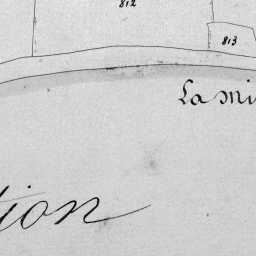 812
813
La mi
tion